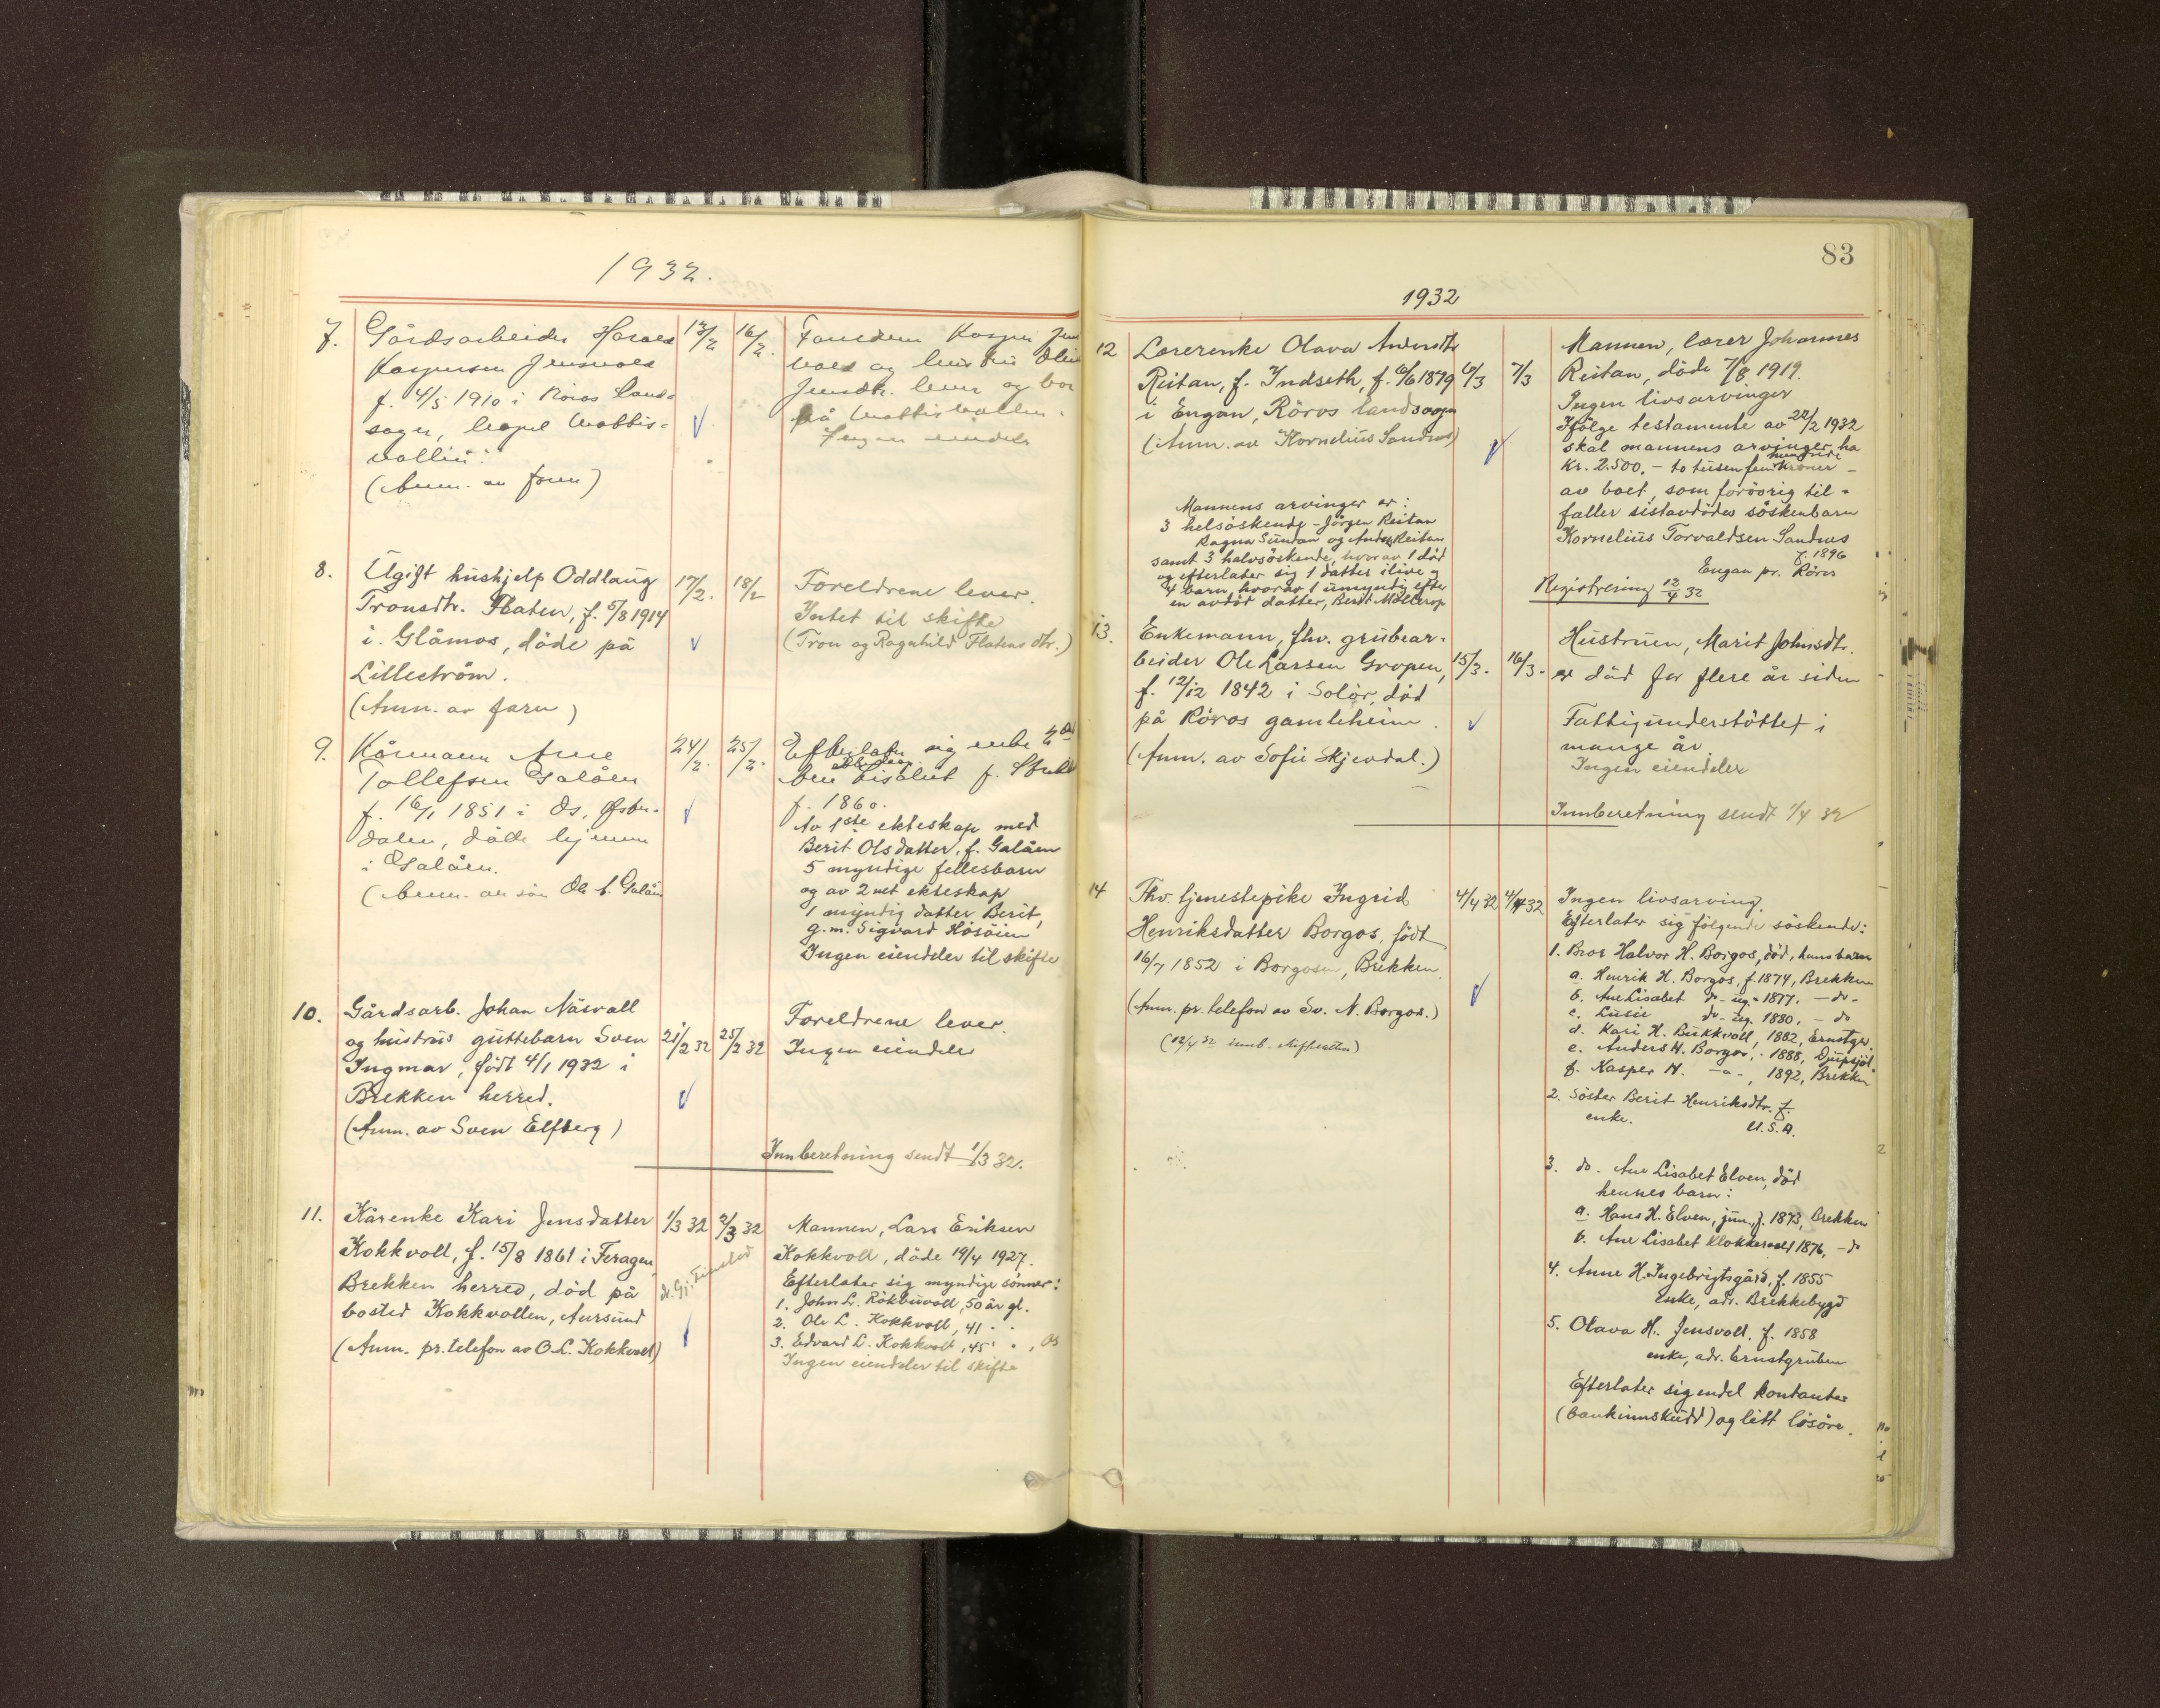 1932.
7. Gårdsarbeider Harald 13/2 16/2.
Kaspersen Jensvold
f. 4/5 1910 i Röros Land-
sogn,
(Anm. av faren)
Kasper
og
Jensdtr. lever og bor
på
Ingen eiendeler
8. Ugift hushjelp Oddlaug 17/2. 18/2
Tronsdtr. Flaten, f. 5/8 1914
i Glåmos, döde på
Lilleström.
(Anm. av faren)
Foreldrene lever.
Intet til skifte
(Tron og Ragnhild Flatens dtr.)
9. Kårmann Arne 24/2. 25/2.
Tollefsen Galåen
f. 16/1 1851 i Os, Øster-
dalen, döde hjemme
i Galåen.
(Anm. av sön Ole A. Galåen
Efterlater sig enke
Lisabet f.
f. 1860.
Av 1ste ekteskap med
Berit Olsdatter, f. Galåen
5 myndige fellesbarn
og av 2net ekteskap
1 myndig datter Berit,
g.m. Sigvard Hösöien
Ingen eiendeler til skifte
10. Gårdsarb. Johan Näsvall
og hustrus guttebarn Sven 21/2 32 25/2 32
Ingmar, födt 4/1 1932 i
Brekken herred.
(Anm. av Sven Elfberg)
Foreldrene lever.
Ingen eiendeler
Innberetning sendt 1/3 32.
11. Kårenke Kari Jensdatter 1/3 32 2/3 32
Kokkvoll, f. 15/8 1861 i Feragen,
Brekken herred, död på
bosted Kokkvollen, Aursund
(Anm. pr. telefon av O.L. Kokkvoll)
Mannen, Lars Eriksen
Kokkvoll, döde 19/4 1927.
Efterlater sig myndige sönner:
1. John L. Rökbuvoll, 50 år gl.
2. Ole L. Kokkvoll, 41 - -
3. Edvard L. Kokkvoll, 45 - -, Os
Ingen eiendeler til skifte
83
1932
12 Lærerenke Olava Andersdtr
Reitan, f. Indseth, f. 6/6 1879 6/3 7/3
i Engan, Röros landsogn
(Anm. av Kornelius Sandnes)
Mannens arvinger er:
3 helsöskende - Jörgen Reitan
Ragna Sundan og Anders Reitan
samt 3 halvsöskende, hvorav 1 död
og efterlater sig 1 datter ilive og
4 barn, hvorav 1 umyndig efter
en avdöd datter, Berit Möllerop
Mannen, lærer Johannes
Reitan, döde 7/8 1919.
Ingen livsarvinger
Ifölge testamente av 22/2 1932
skal mannens arvinger ha
Kr. 2.500,- to tusen femhundre kroner -
av boet, som forövrig til-
faller sistavdödes söskenbarn
Kornelius Torvaldsen Sandnes
f. 1896
Engan pr. Röros
Registrering 12/4 32
13. Enkemann, fhv. grubear-
beider Ole Larsen Gropen, 15/3. 16/3.
f. 12/12 1842 i Solör, död
på Röros gamleheim.
(Anm. av Sofie Skjevdal.)
Hustruen, Marit Johnsdtr.
er död for flere år siden
Fattigunderstöttet i
mange år.
Ingen eiendeler
Innberetning sendt 1/4 32
14 Fhv. tjenestepike Ingrid 4/4 32 4/4 32
Henriksdatter Borgos, födt
16/7 1852 i Borgosen, Brekken.
(Anm. pr. telefon av Sv. N. Borgos.)
(12/4 32 innb. skifteretten)
Ingen livsarving.
Efterlater sig fölgende söskende:
1. Bror Halvor H. Borgos, död, hans barn
a. Henrik H. Borgos, f. 1874, Brekken
b. Ane Lisabet do - ug. - 1877. - do -
c. Lusie do - ug. 1880, - do
d. Kari H. Bukkvoll, 1882, Ernstgr.
e. Anders H. Borgos, - 1888, Djupsjöl.
f. Kasper H. - a - , 1892, Brekken
2. Söster Berit Henriksdtr. f.
enke. U.S.A.
3. do - Ane Lisabet Elven, död
hennes barn:
a. Hans H. Elven, jun., f. 1873, Brekken
b. Ane Lisabet Klokkervoll 1876, - do
4. Anne H. Ingebrigtsgård, f. 1855
enke, adr. Brekkebygd
5. Olava H. Jensvold, f. 1858
enke, adr. Ernstgruben
Efterlater sig endel kontanter
(bankinnskudd) og litt lösöre.